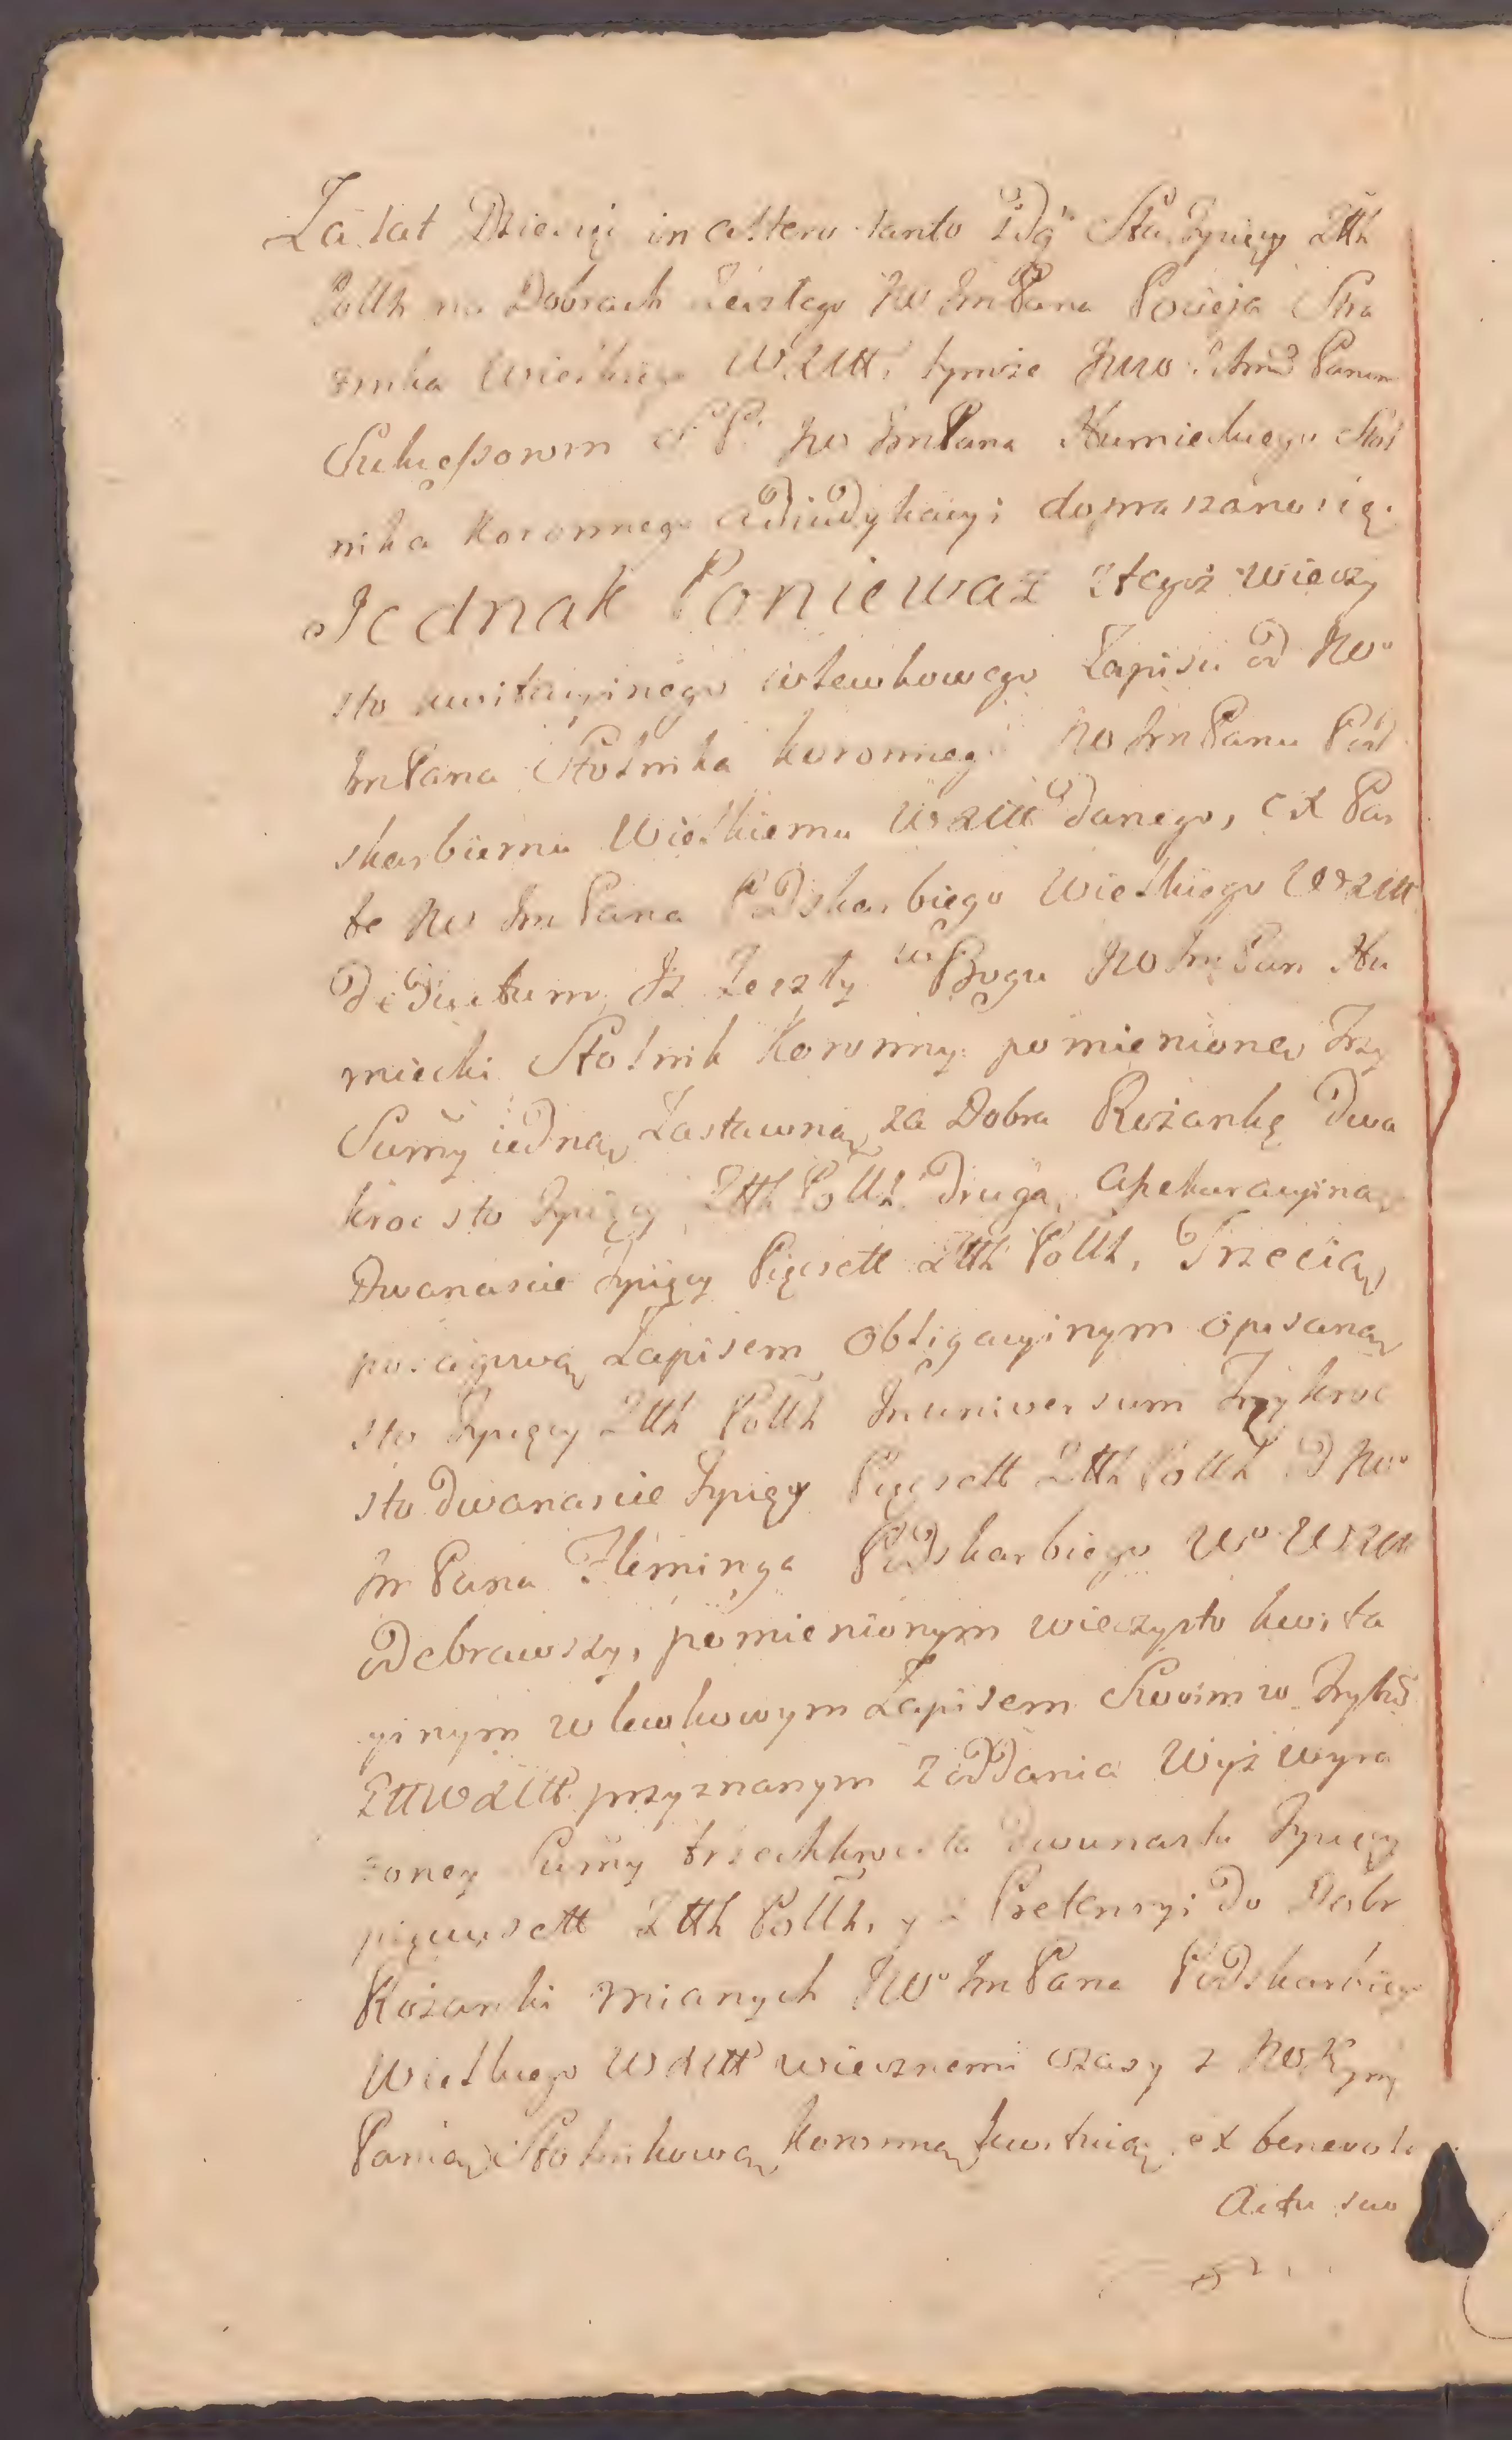 Za lat Dziesięć in altero tanto idą Sta Tysięcy Złłh
Pollh na Dobrach Zeszłego JW JmPana Pocieja Stra
żnika Wielkiego W.X.Litt. tymże JWW. Ichmć Panom
Sukcessorom S.P. JW JmPana Humieckiego Stol
nika Koronnego adiudykacyi dopraszano się.
Jednak Poniewaz z tegoż wieczy
sto kwitacyinego wlewkowego Zapisu od JWo
JmPana Stolnika koronnego JWJmPanu Pod
skarbiemu Wielkiemu WXLitt danego, ex Par
te JW JmPana Podskarbiego Wielkiego WoXLitt
Deductum, Iż Zeszły w Bogu JWJmPan Hu
miecki Stolnik Koronny pomienione Trzy
Summy iedną Zastawną za Dobra Rożankę Dwa
kroc sto Tysięcy Złłh Pollh. Drugą, asekuracyiną
Dwanascie Tysięcy Pięcsett Złłh Pollh, Trzecią
posagową Zapisem Obligacyinym opisaną
sto Tysięcy Złłh Pollh In universum Trzykroc
sto Dwanascie Tysięcy Pięcsett Złłh Pollh od JWo
Jm Pana Fleminga Podskarbiego Wo WXLitt
odebrawszy, pomienionym wieczysto kwita
yinym wlewkowym Zapisem Swoim w Trybł
Ltt WXLitt przyznanym z oddania Wyż wyra
żoney Summy trzechkroćsta Dwunastu Tysięcy
pięciusett Złłh Pollh, y z Pretensyi do Dobr
Rożanki mianych JWo JmPana Podskarbiego
Wielkiego WXLitt wiecznemi czasy z JW Jmć
Panią Stolnikową Koronną kwituią, ex benevolo
Actu suo